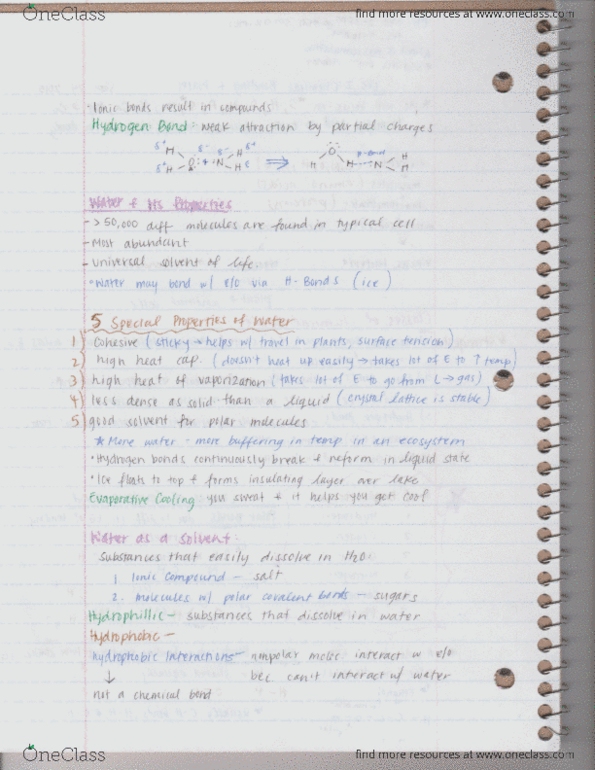 OneClass
find more resources at www.oneclass.com
· Ionic bonds result in compounds
Hydrogen Bond: weak attraction by partial charges
Water & Its Properties
- > 50,000 diff molecules are found in typical cell
- Most abundant
- Universal solvent of life
· Water may bond w/ e/o via H-Bonds (ice)
5 Special Properties of Water
1) Cohesive (sticky → helps w/ travel in plants, surface tension)
2) high heat cap. (doesn't heat up easily → takes lot of E to ↑ temp)
3) high heat of vaporization (takes lot of E to go from L → gas)
4) less dense as solid than a liquid (crystal lattice is stable)
5) good solvent for polar molecules
★ More water - more buffering in temp in an ecosystem
· Hydrogen bonds continuously break & reform in liquid state
· Ice floats to top & forms insulating layer over lake
Evaporative Cooling you sweat & it helps you get cool
Water as a Solvent:
Substances that easily dissolve in H2O:
1. Ionic Compound - salt
2. molecules w/ polar covalent bonds - sugars
Hydrophillic - substances that dissolve in water
Hydrophobic -
hydrophobic interactions - nonpolar molec. interact w e/o
↓ bec. can't interact w/ water
not a chemical bond
OneClass
find more resources at www.oneclass.com